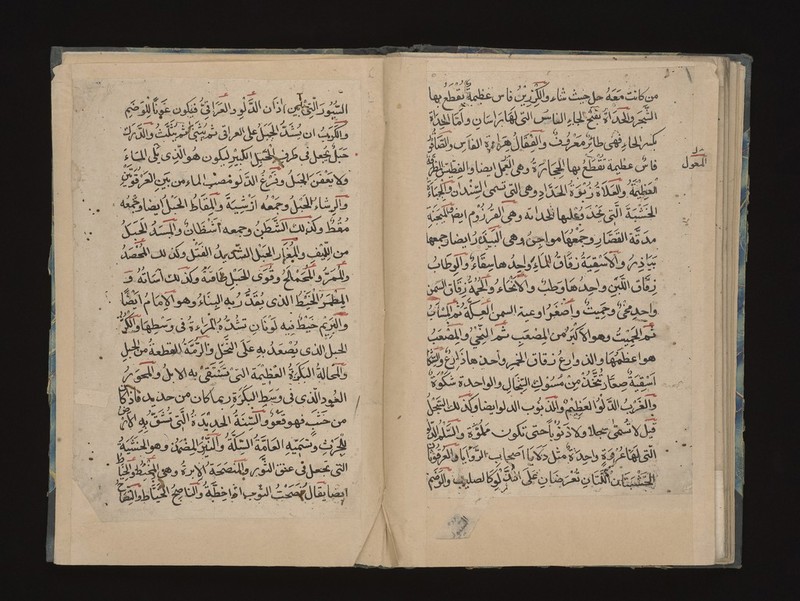 من كانت معه حل حيث شاء والكرزين فاس عظيمة تقطع بها
الشجر والحدأة بفتح الحاء الفاس التي لها راسان ولما الحدأة
بكسر الحاء فهي طائر معروف والفعال هراوة الفاس والصاقور
المعول
فاس عظيمة تقطع بها الحجارة وهي المعول ايضا والفطيس المطرقة
العظيمة والعلاة زبرة الحداد وهي التي تسمى السندان والجبأة
الخشبة التي يحذو عليها الحذاء وهي القرزوم ايضا والميجنة
مدقة القصار وجمعها مواجن وهي البيزر ايضا وجمعها
بيازر والاسقية زقاق الماء واحدها سقاء والوطاب
زقاق اللبن واحدها وطب والانحاء والحمت زقاق السمن
واحدها نحي وحميت واصغر اوعية السمن العكة ثم المساب
ثم الحميت وهو الاكبر من ثم النحي
هو اعظمها والذوارع زقاق الخمر واحدها ذارع والشكا
اسقية صغار تتخذ من مسوك السخال والواحدة شكوة
والغرب الدلو العظيم والذنوب الدلو ايضا وكذلك السجل
قيل لا تسمى سجلا ولا ذنوبا حتى تكون مملوة والسلم الدلو
التي لها عروة واحدة مثل دلاء اصحاب الروايا والعرقوتا
الخشبتان اللتان تعرضان على الدلو كالصليب والوذم
السيور التي بين اذان الدلو والعراقي فيكون عونا للوذم
والكرب ان يشد الحبل على العراقي ثم يثنى ثم يثلث والدرك
حبل يجعل في طرف الحبل الكبير ليكون هو الذي يلي الماء
ولا يعفن الحبل وفرغ الدلو مصب الماء من بين العرقوتين
والرشاء الحبل وجمعه ارشية والمقاط الحبل ايضا وجمعه
مقط وكذلك الشطن وجمعه اشطان والمسد الحبل
من الليف والمغار الحبل الشديد الفتل وكذلك المحصد
والممر والمحملج وقوى الحبل طاقة وكذلك اسانه و
المطمر الخيط الذي يقدر به البناء وهو الامام ايضا
والبريم خيط فيه لونان تشده المراة في وسطها والكر
الحبل الذي يصعد به على النخل والرمة القطعة من الحبل
والمحالة البكرة العظيمة التي تستقي بها الابل والمحور
العود الذي في وسط البكرة ربما كان من حديد فاذا كان
من خشب فهو قعو والسنة الحديدة التي تشق بها الارض
للحرث وتسميه العامة السكة والنير المضمد وهو الخشبة
التي تجعل في عنق الثور والمنصحة الابرة وهي المخيط والخياط
ايضا يقال نصحت الثوب اذا خطته والناصح الخياط والنصاح